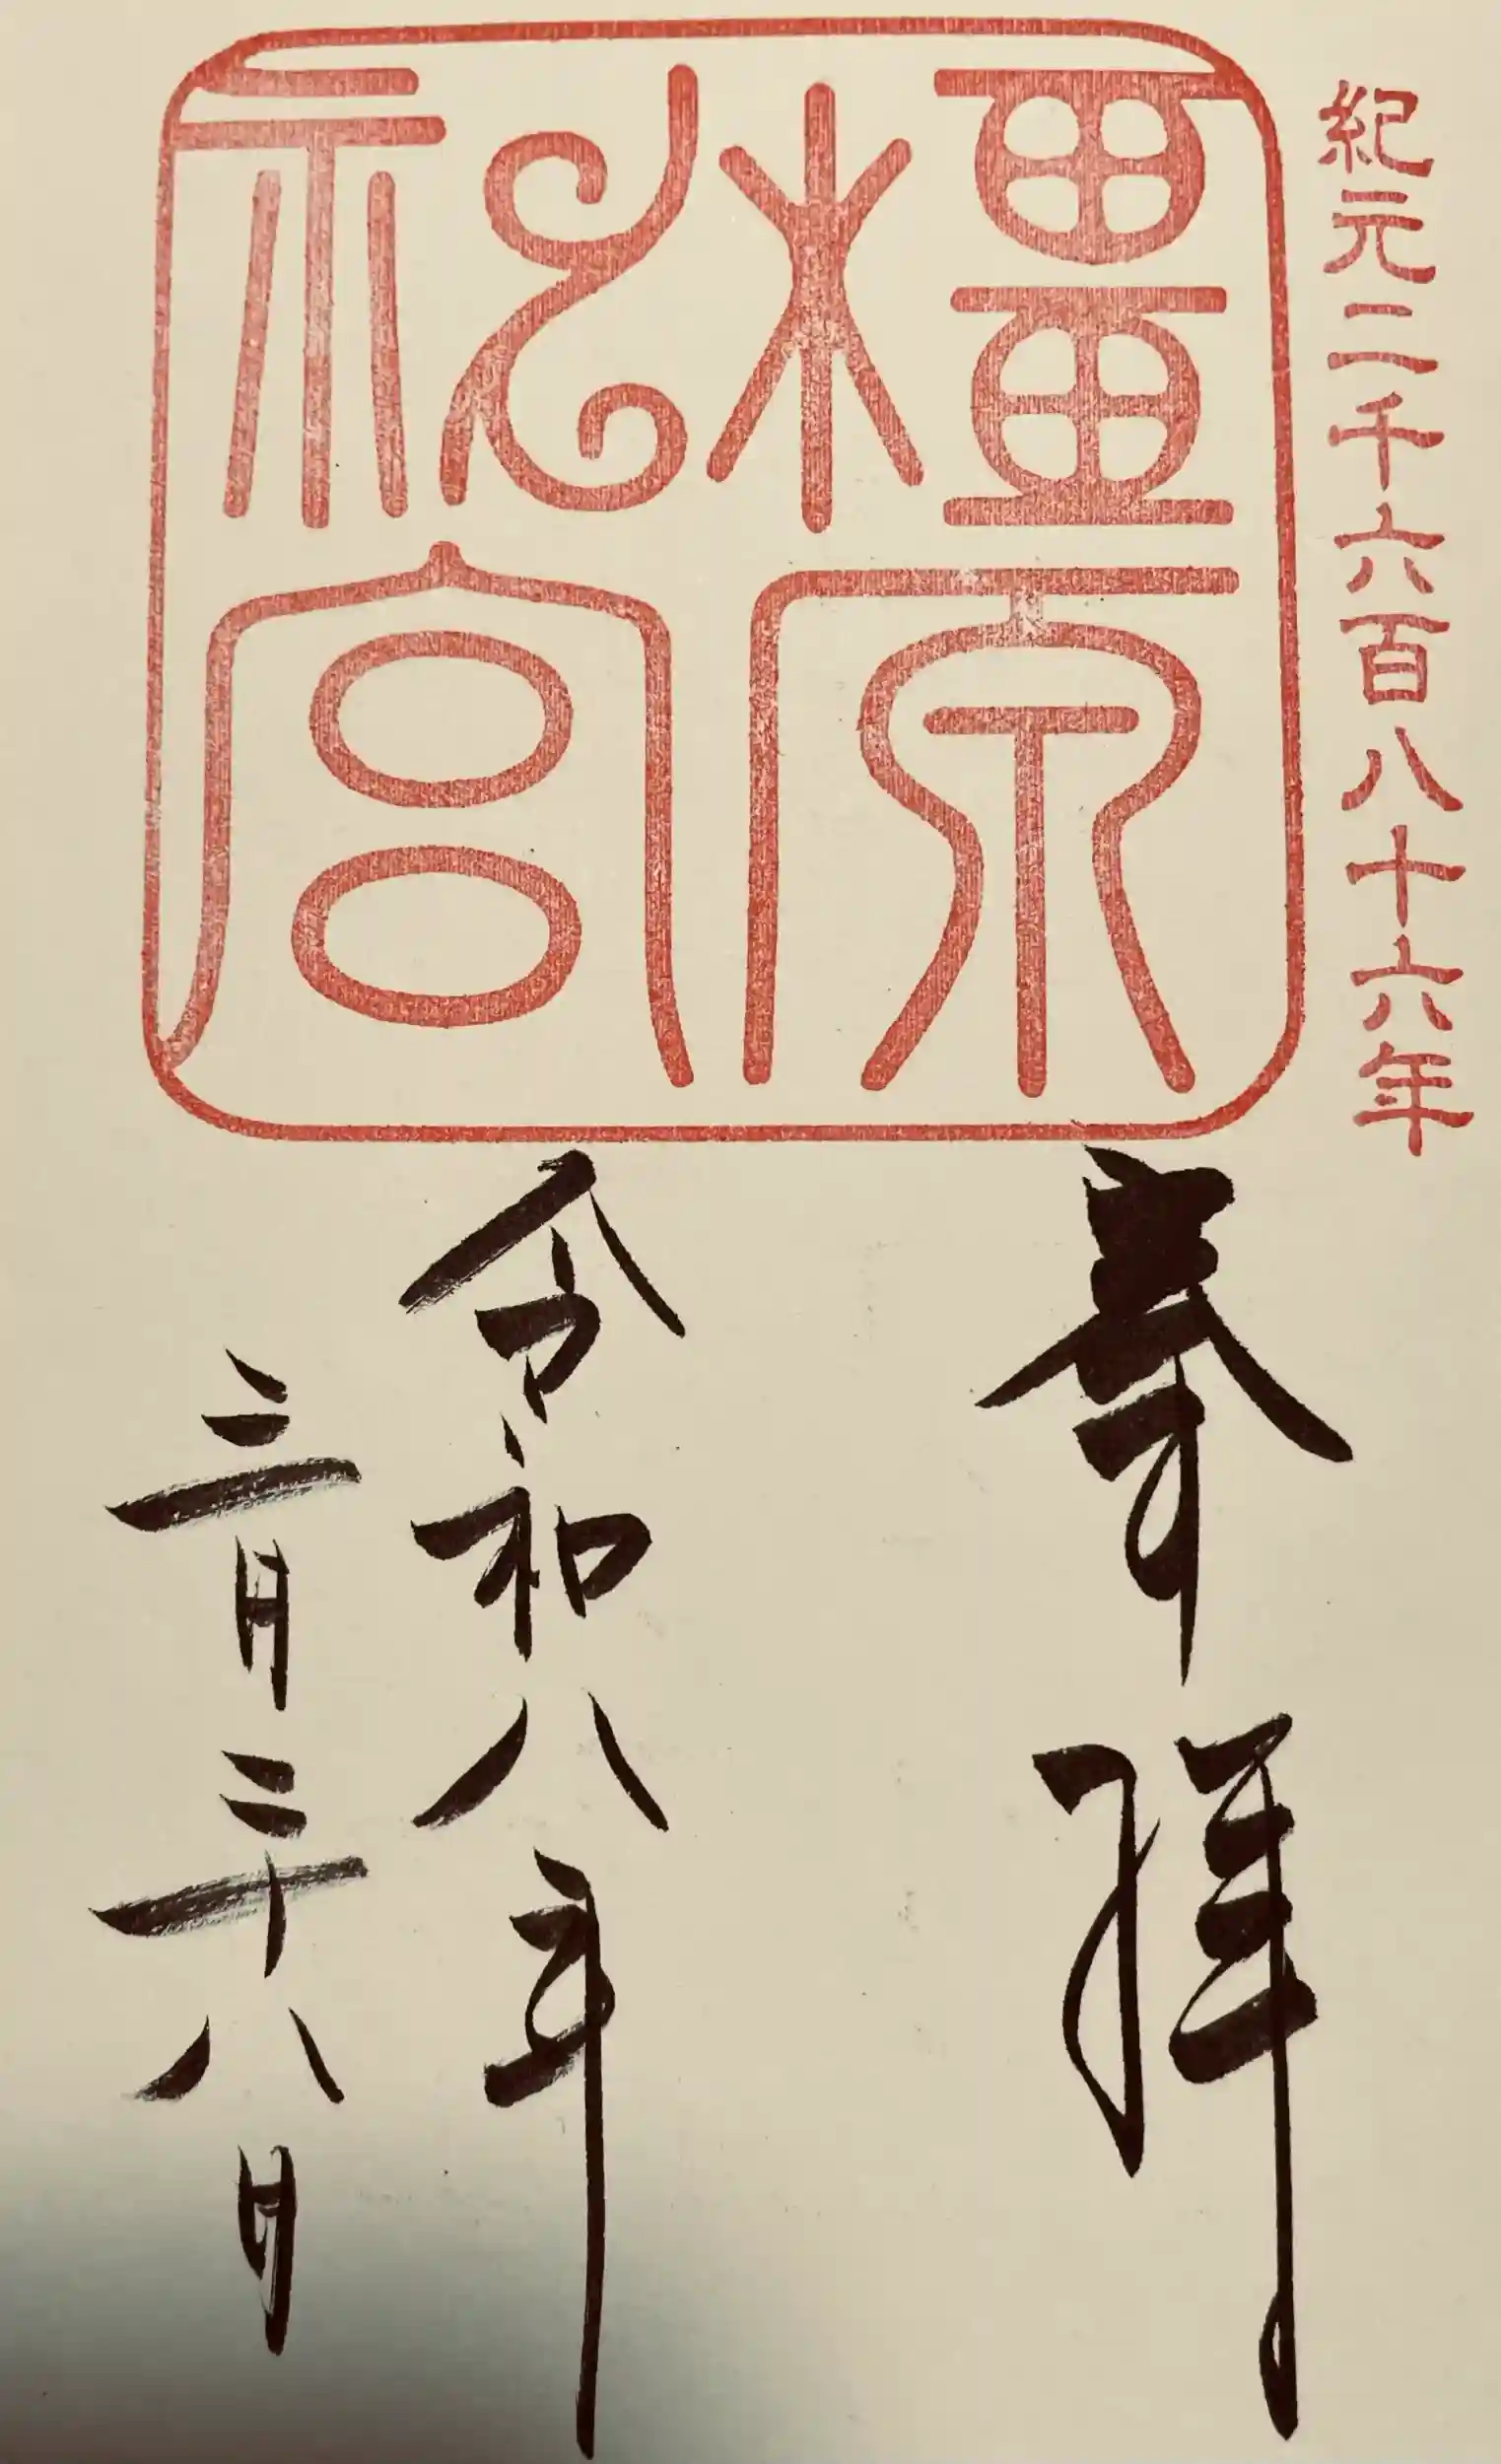 紀元二千六百八十六年
橿原
神宮
奉拝
令和八年
三月二十八日